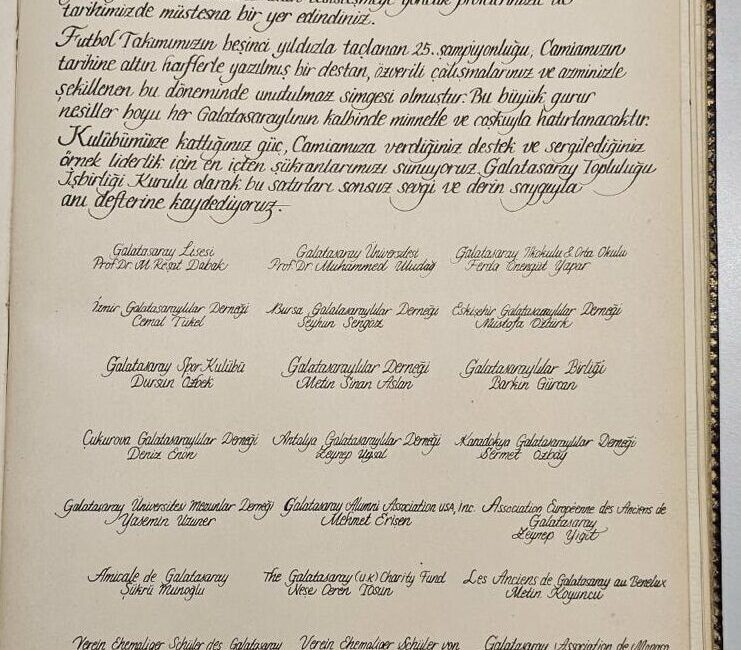 tarihimizde müstesna bir yer edindiniz.
Futbol Takımımızın beşinci yıldızla taçlanan 25. şampiyonluğu, Camiamızın
tarihine altın harflerle yazılmış bir destan, özverili çalışmalarınız ve azminizle
şekillenen bu döneminde unutulmaz simgesi olmuştur. Bu büyük gurur
nesiller boyu her Galatasaraylının kalbinde minnetle ve coşkuyla hatırlanacaktır.
Kulübümüze kattığınız güç, Camiamıza verdiğiniz destek ve sergilediğiniz
örnek liderlik için en içten şükranlarımızı sunuyoruz. Galatasaray Topluluğu
İşbirliği Kurulu olarak bu satırları sonsuz sevgi ve derin saygıyla
anı defterine kaydediyoruz.
Galatasaray Lisesi Galatasaray Üniversitesi Galatasaray İlkokulu & Orta Okulu
Prof.Dr. M. Reşat Dabak Prof.Dr. Muhammed Uludağ Ferda Önengüt Yapar
İzmir Galatasaraylılar Derneği Bursa Galatasaraylılar Derneği Eskişehir Galatasaraylılar Derneği
Cemal Tükel Seyhun Şengöz Mustafa Öztürk
Galatasaray Spor Kulübü Galatasaraylılar Derneği Galatasaraylılar Birliği
Dursun Özbek Metin Sinan Aslan Barkın Gürcan
Çukurova Galatasaraylılar Derneği Antalya Galatasaraylılar Derneği Kapadokya Galatasaraylılar Derneği
Deniz Enön Zeynep Uysal Sermet Özbay
Galatasaray Üniversitesi Mezunlar Derneği Galatasaray Alumni Association USA, Inc. Association Européenne des Anciens de
Yasemin Uzuner Mehmet Erişen Galatasaray
Zeynep Yiğit
Amicale de Galatasaray The Galatasaray (U.K) Charity Fund Les Anciens de Galatasaray au Benelux
Şükrü Munoğlu Neşe Ceren Tosun Metin Koyuncu
Verein Ehemaliger Schüler des Galatasaray Verein Ehemaliger Schüler von Galatasaray Association de Monaco